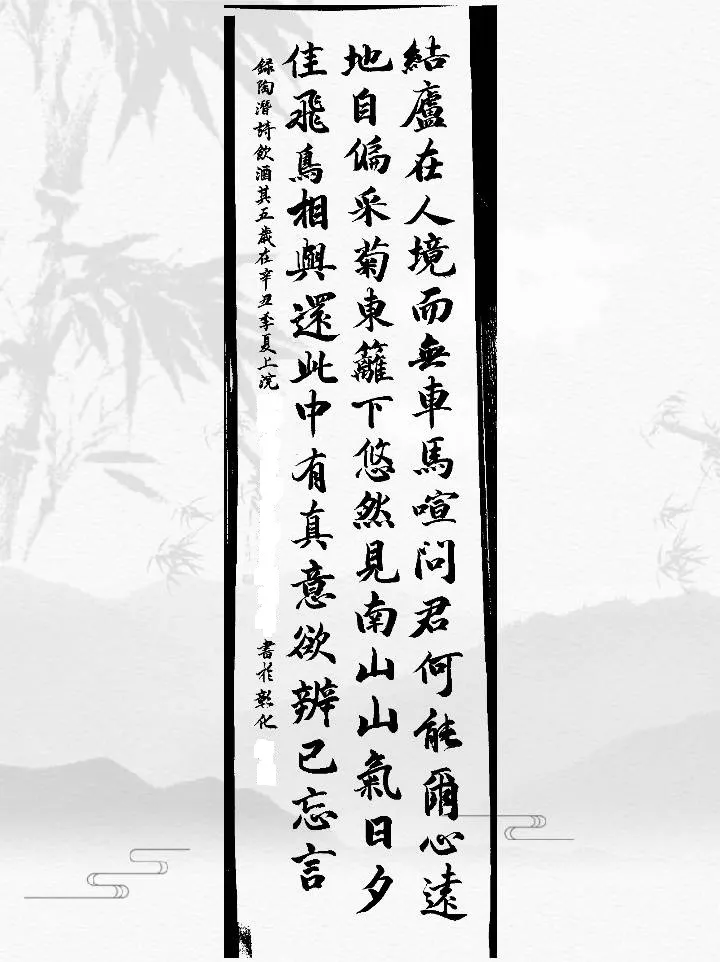 結廬在人境而無車馬喧問君何能爾心遠
地自偏采菊東籬下悠然見南山山氣日夕
佳飛鳥相與還此中有真意欲辨已忘言
錄陶潛詩飲酒其五歲在辛丑季夏上浣
書於彰化